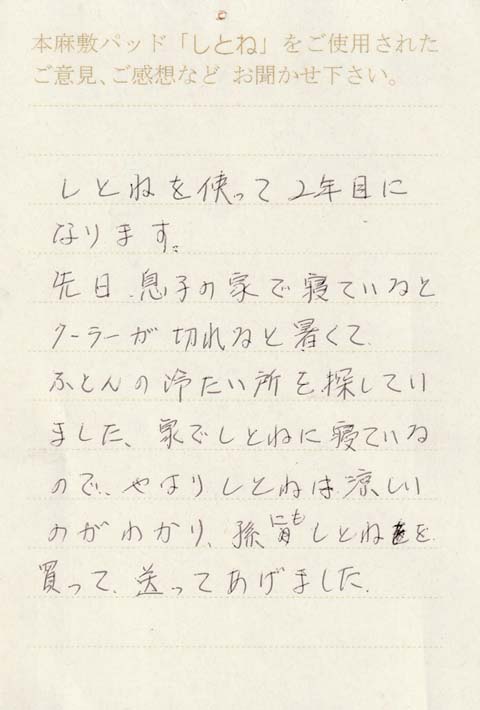 本麻敷パッド「しとね」をご使用された
ご意見、ご感想など お聞かせ下さい。
しとねを使って 2年目に
なります。
先日、息子の家で寝ていると
クーラーが 切れると 暑くて
ふとんの冷たい所を探してい
ました、家でしとねに寝ている
ので、やはりしとねは涼しい
のがわかり、孫にもしとねを
買って、送ってあげました。